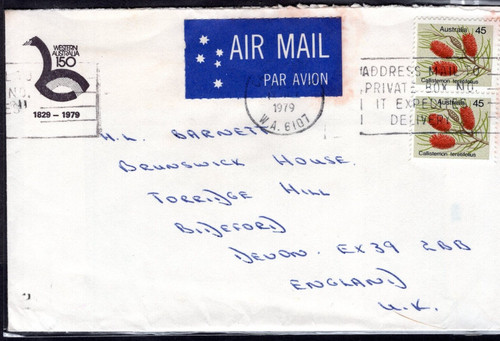 WESTERN
AUSTRALIA
150
1829 – 1979
AIR MAIL
PAR AVION
1979
W.A. 6107
ADDRESS MAIL TO
PRIVATE BOX NO.
IT EXPEDITES
DELIVERY
Australia 45
Callistemon teretifolius
Australia 45
Callistemon teretifolius
H.L. BARNETT
BRUNSWICK HOUSE.
TORRIDGE HILL
BIDEFORD
DEVON. EX39 2BB
ENGLAND
U.K.